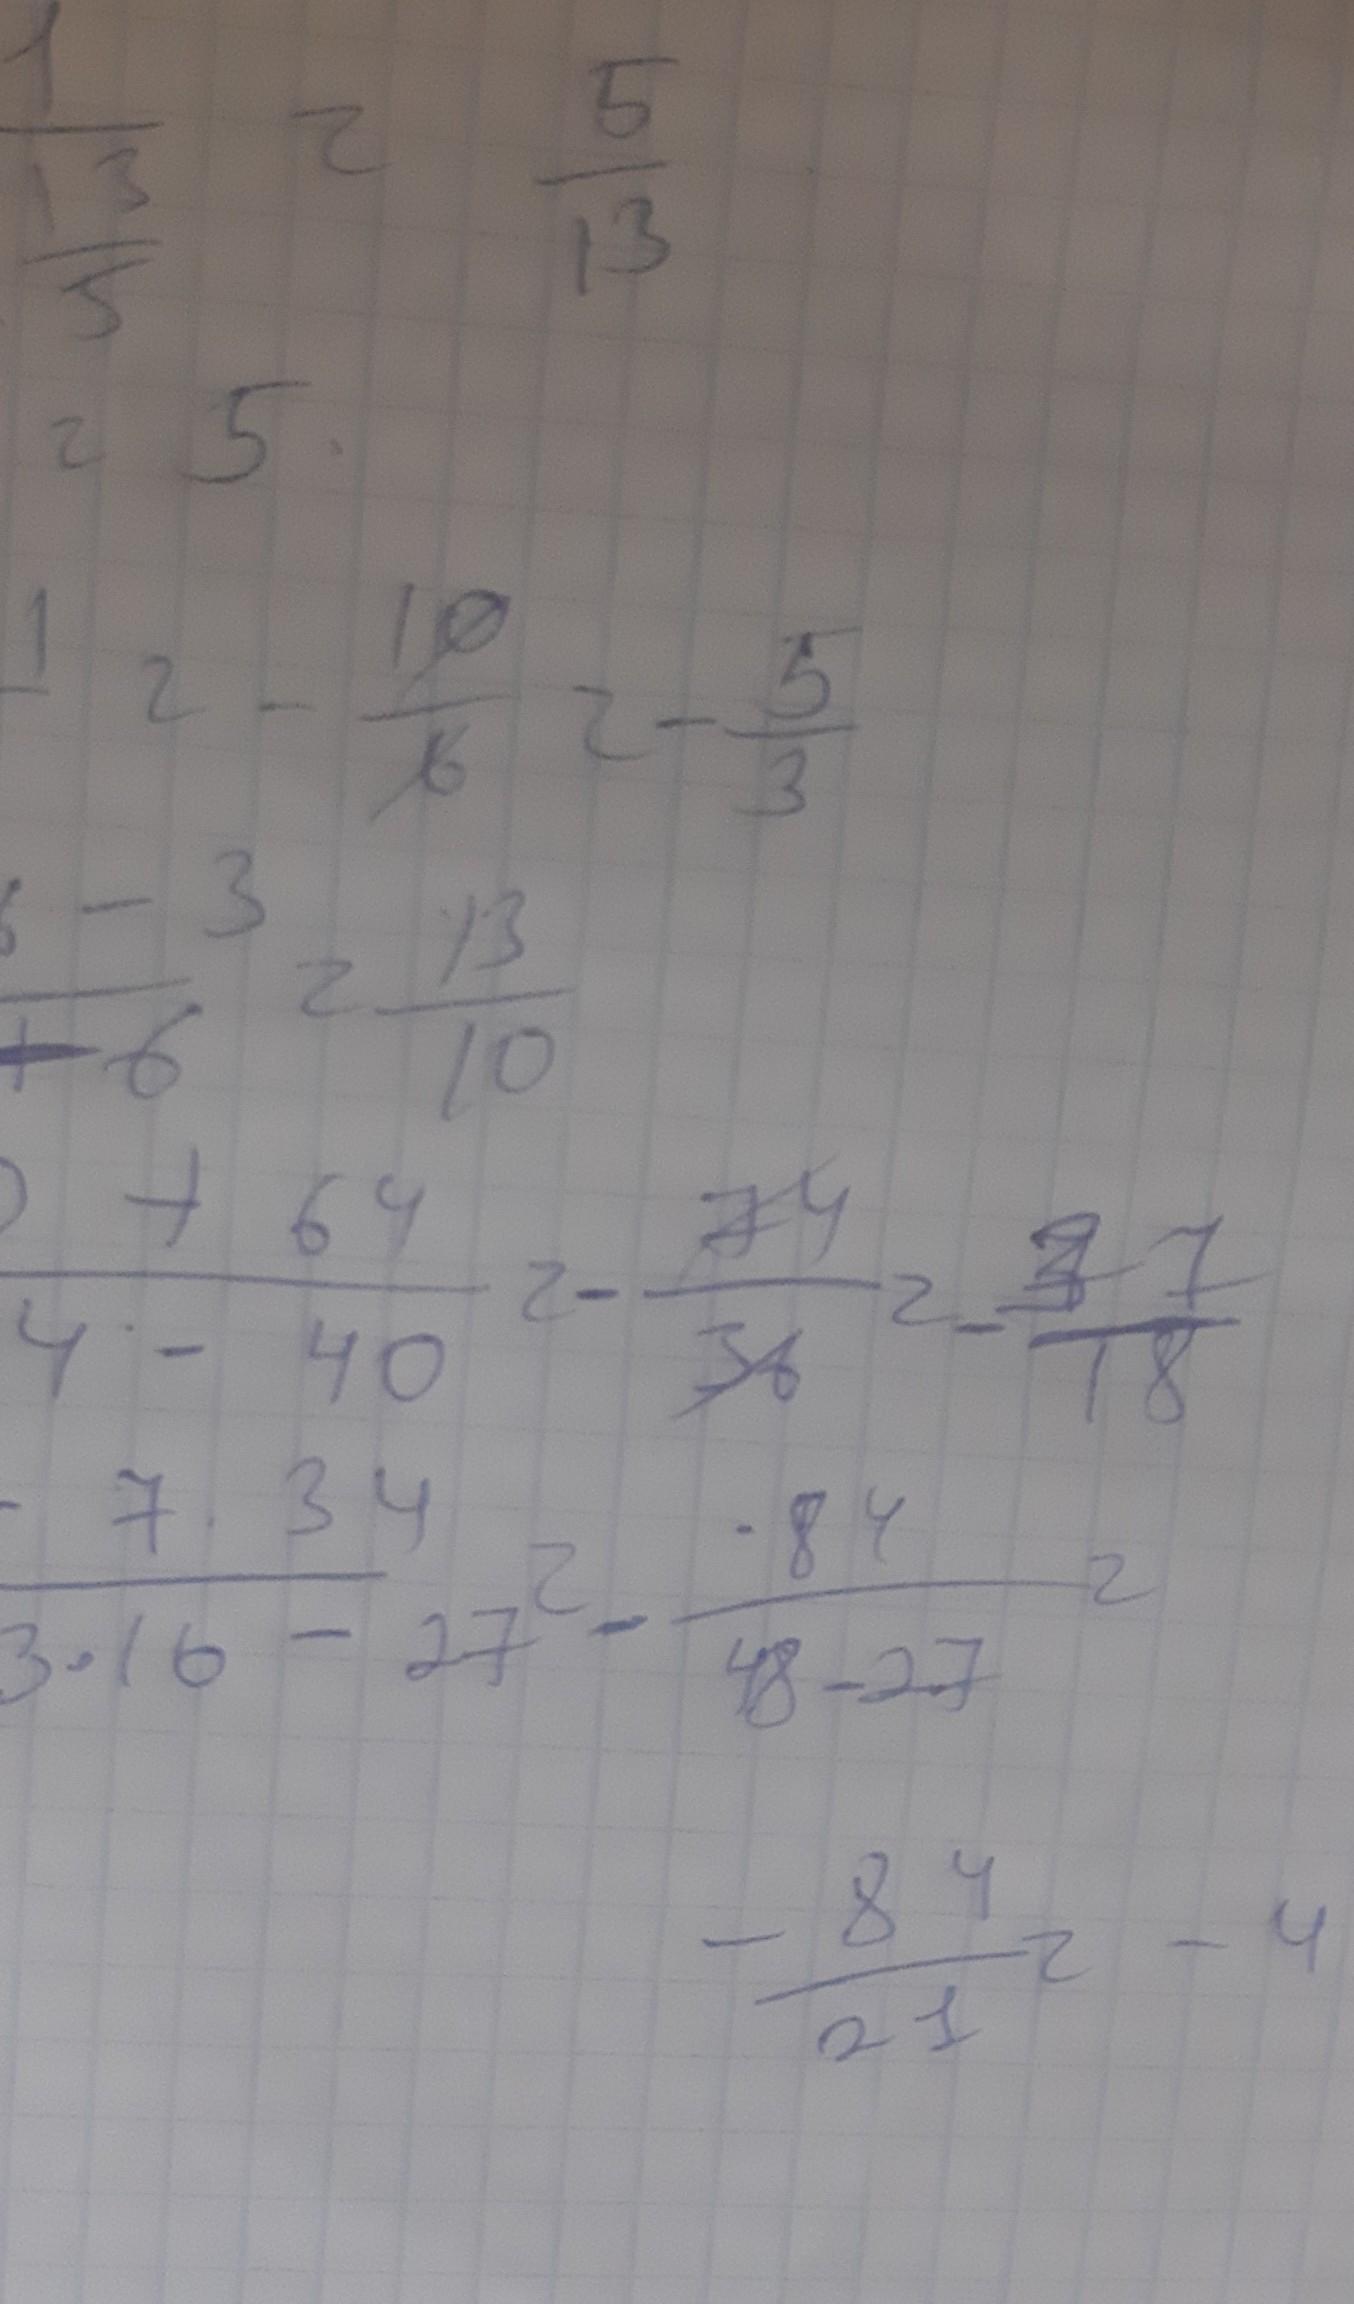 1/(13/5) = 5/13
= 5.
1 = - 10/6 = - 5/3
- 3/+ 6 = 13/10
+ 64/4 - 40 = - 74/36 = - 37/18
- 7. 34/3·16 - 27 = - ·84/48-27 =
- 84/21 = - 4